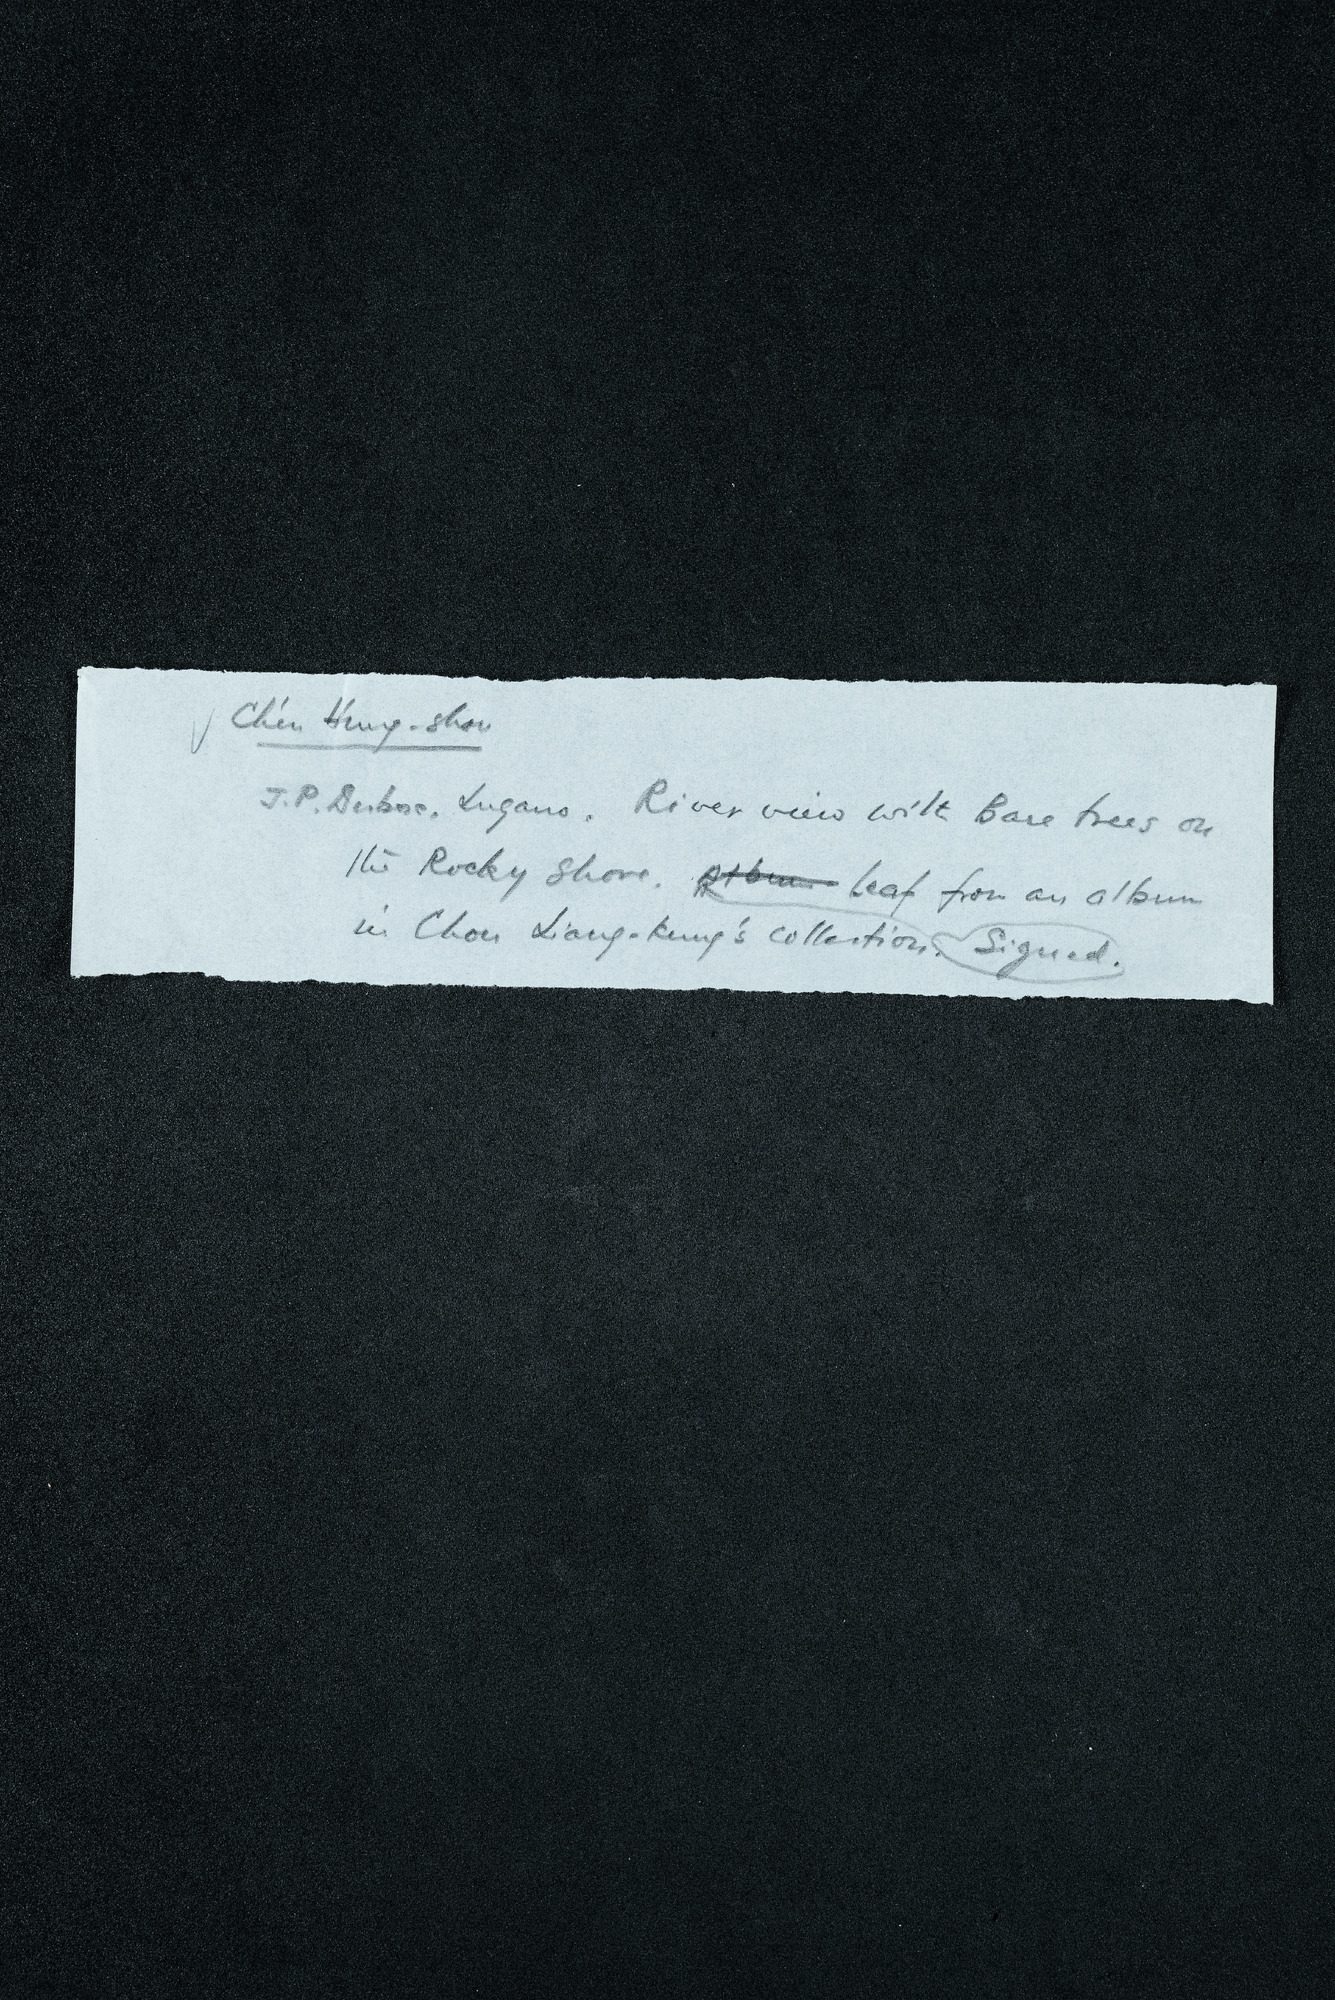 ✓ Ch'en Hung-shou
J.P. Dubosc, Lugano. River view with Bare trees on
the Rocky shore. Album leaf from an album
in Chou Liang-kung's collection. Signed.